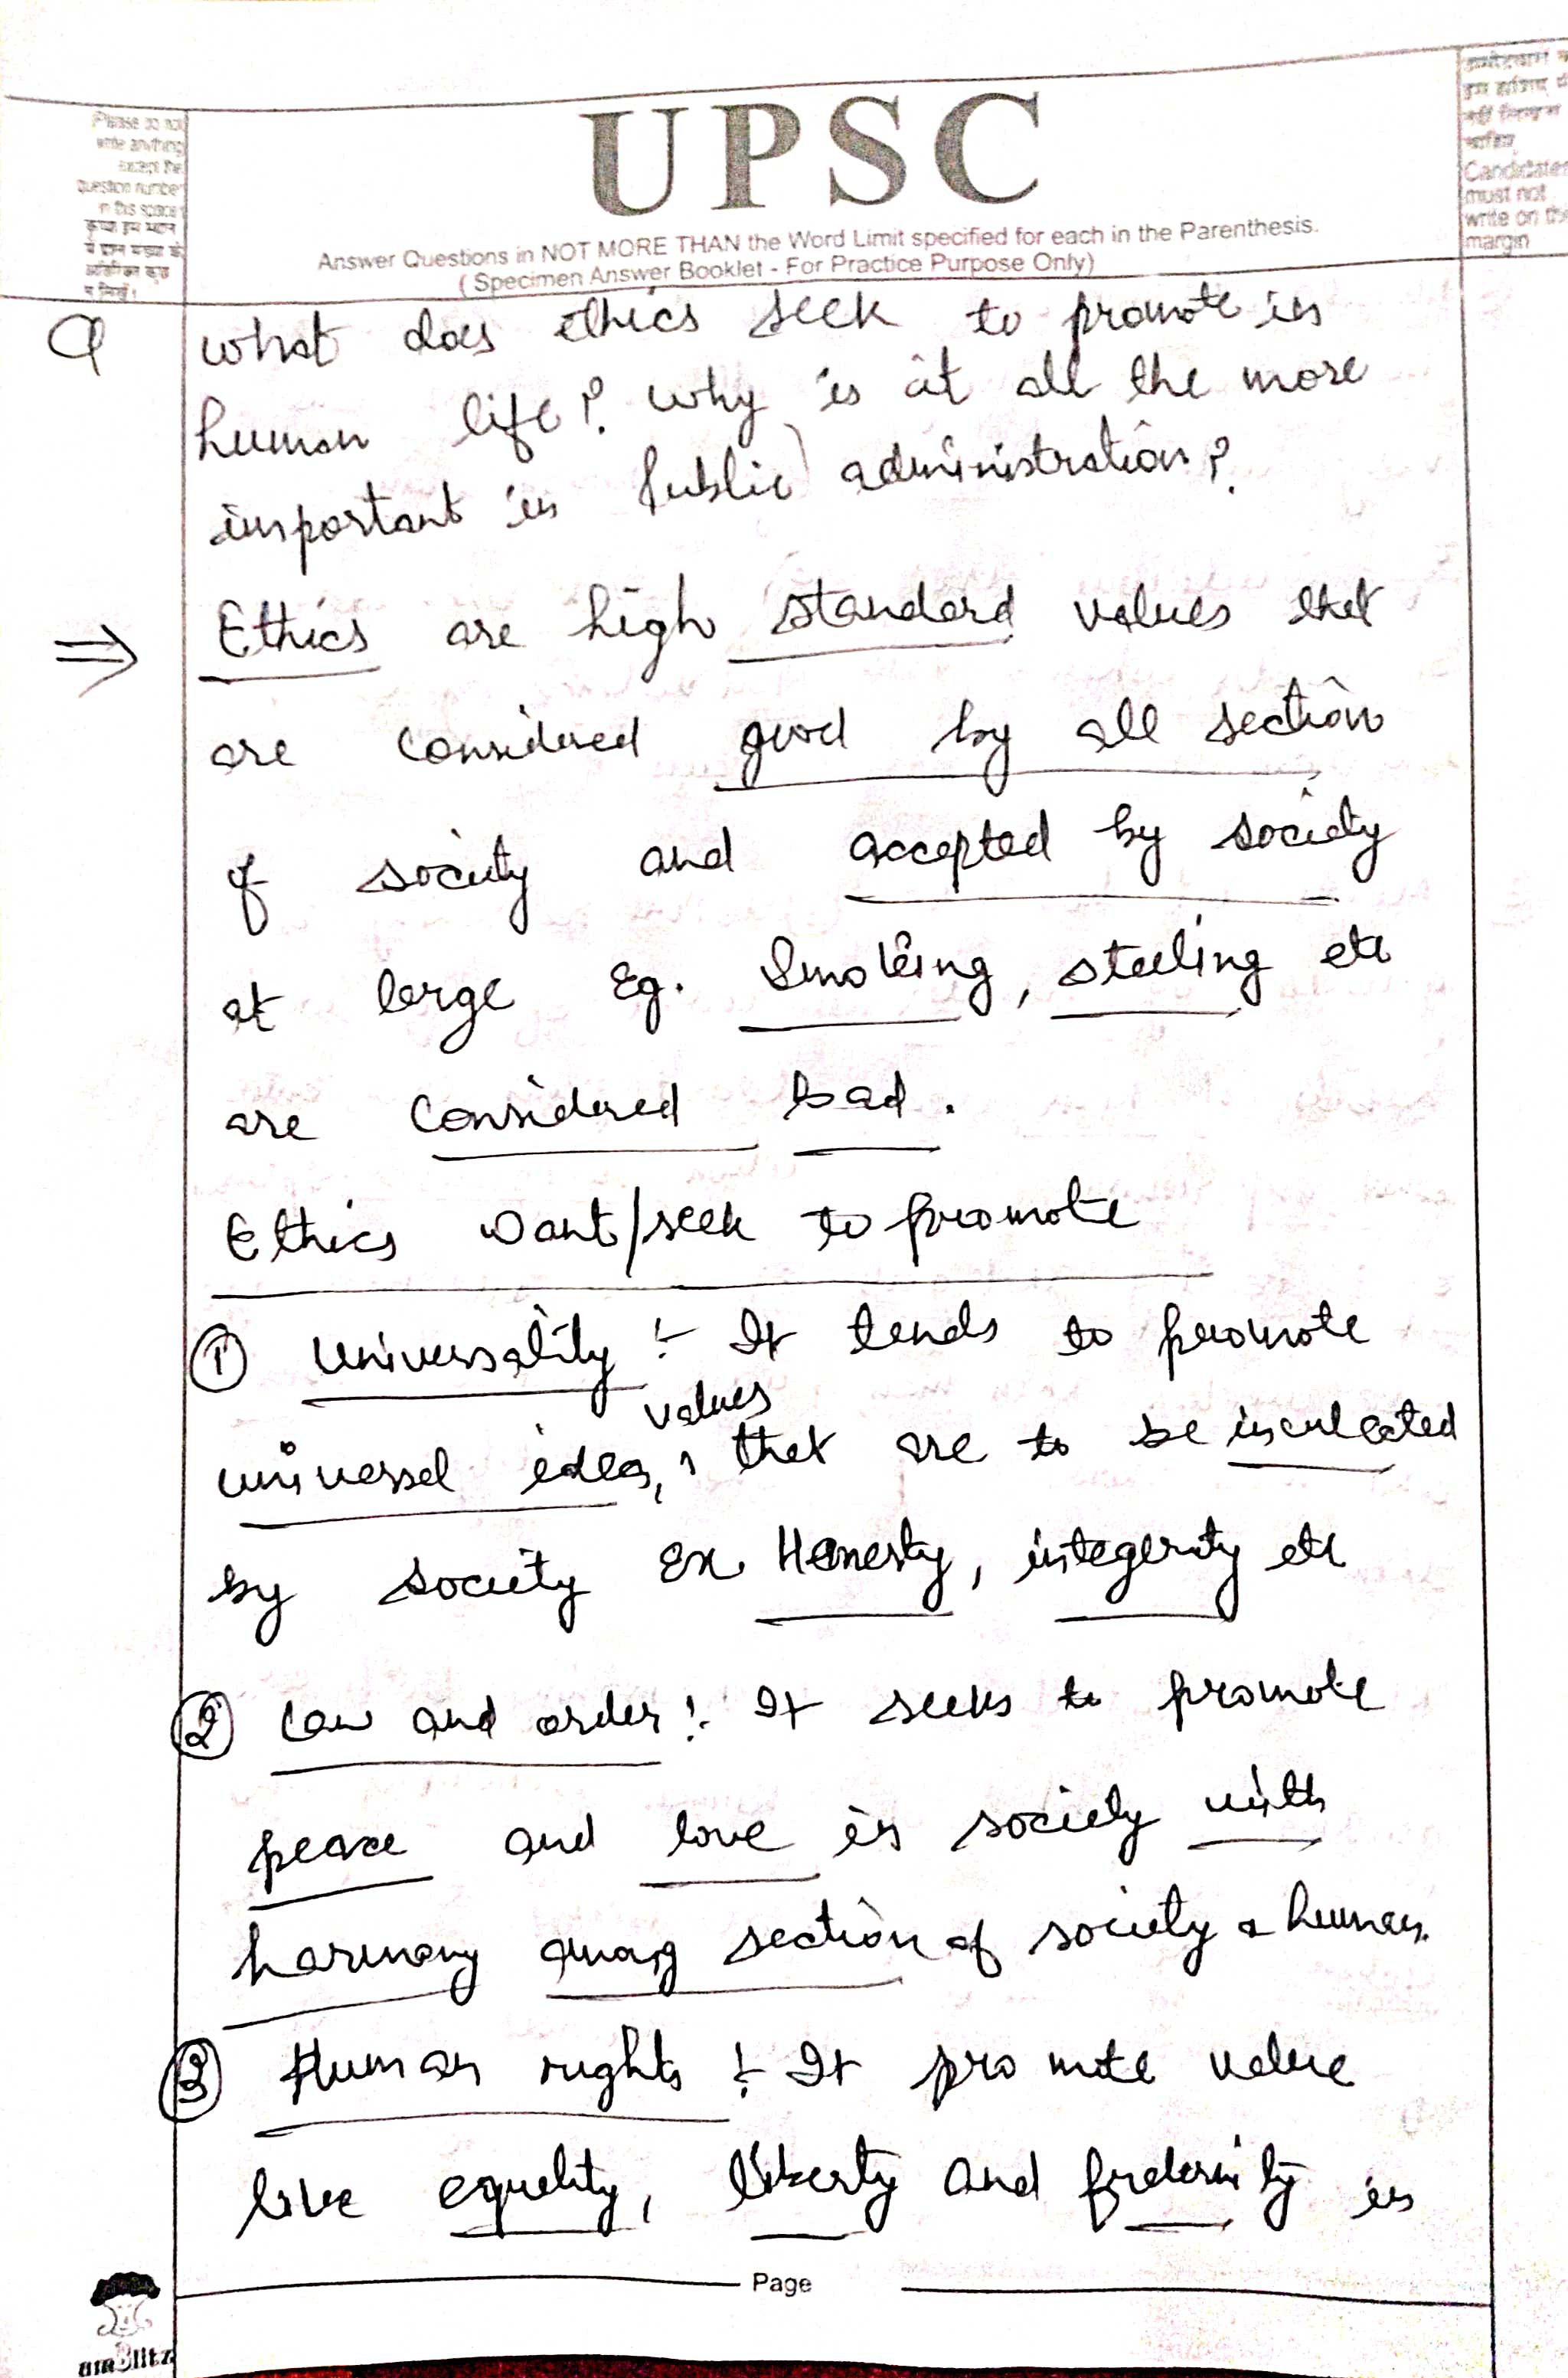 Please do not
write anything
except the
question number
in this space
कृपया इस स्थान
में प्रश्न संख्या के
अतिरिक्त कुछ
न लिखें।
UPSC
Answer Questions in NOT MORE THAN the Word Limit specified for each in the Parenthesis.
( Specimen Answer Booklet - For Practice Purpose Only)
उम्मीदवार को
इस हाशिए में
नहीं लिखना
चाहिए
Candidates
must not
write on the
margin
Q what does ethics seek to promote in
human life? why is it all the more
important in Public administration?
⇒ Ethics are high standard values that
are considered good by all section
of society and accepted by society
at large Eg. Smoking, stealing etc
are considered bad.
Ethics want/seek to promote
① Universality :- It tends to promote
values
universal idea, that are to be inculcated
by society Ex Honesty, integerity etc
② Law and order :- It seeks to promote
peace and love in society with
harmony among section of society & human.
③ Human rights :- It promote value
like equality, liberty and fraternity in
Page